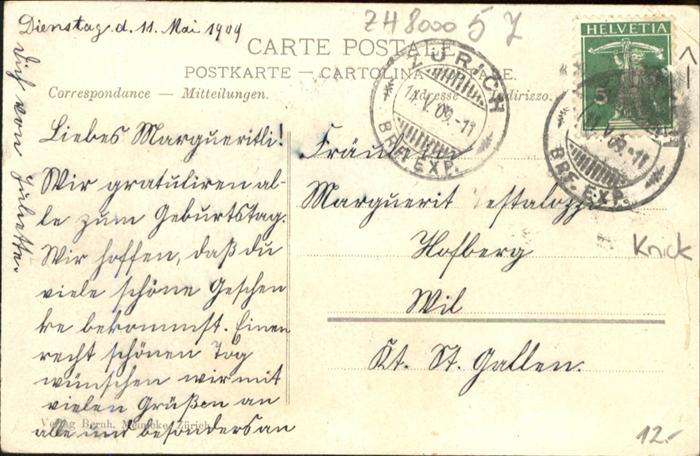 Dienstag d. 11. Mai 1909
ZH 8000 57
CARTE POSTALE
POSTKARTE — CARTOLINA POSTALE.
Correspondance — Mitteilungen.
Adresse — Indirizzo.
HELVETIA
5
ZÜRICH
11.V.09.-11
BRF. EXP.
11.V.09.-11
BRF. EXP.
Liebes Margueritli!
Wir gratuliren al-
le zum Geburtstag.
Wir hoffen, daß du
viele schöne Geschen
ke bekommst. Einen
recht schönen Tag
wünschen wir mit
vielen Grüßen an
alle und besonders an
dich von Juliette.
Fräulein
Marguerit Pestalozzi
Hofberg
Wil
Kt. St. Gallen.
Knick
12.-
Verlag Bernh. Zürich